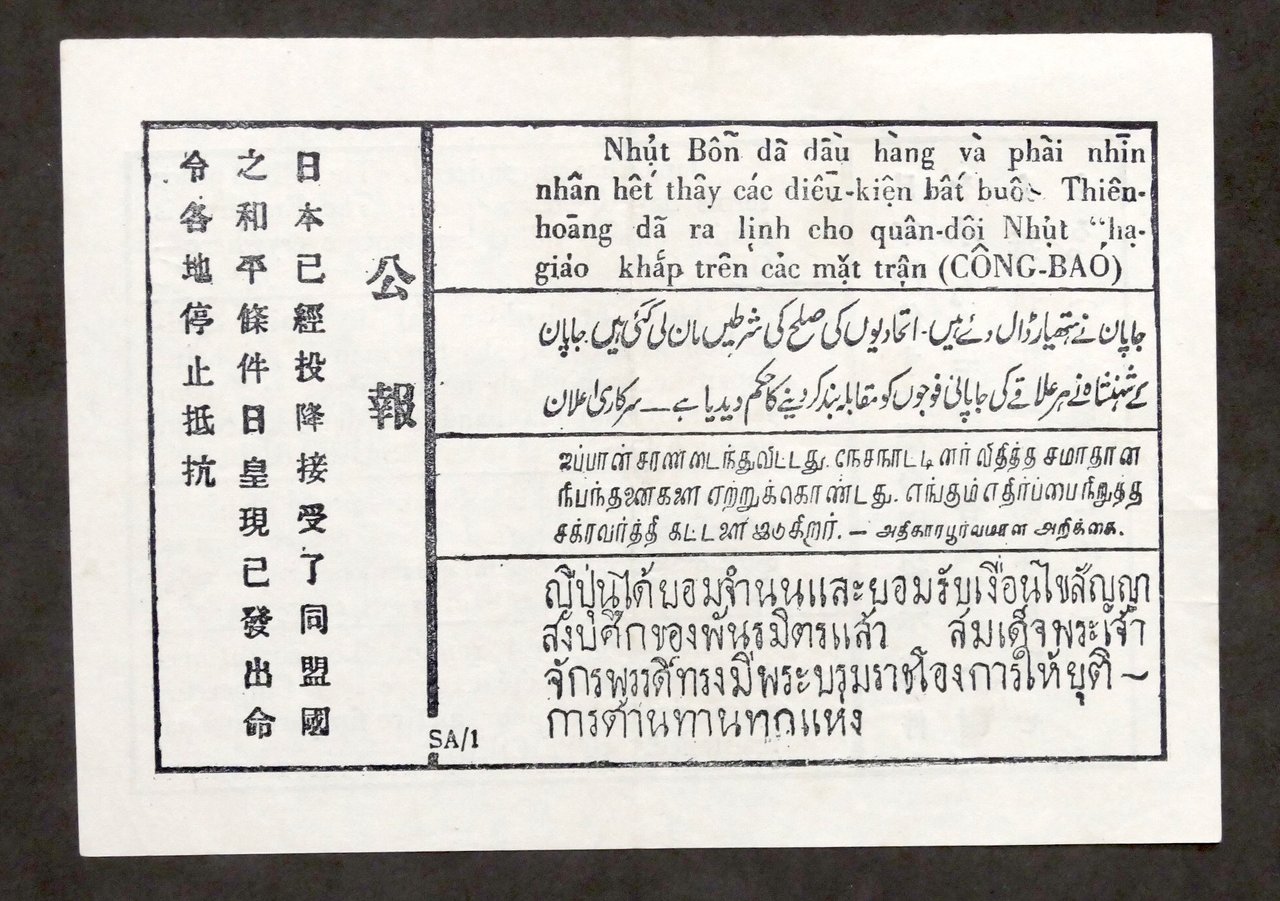 公報
日本已經投降接受了同盟國
之和平條件日皇現已發出命
令各地停止抵抗
SA/1
Nhụ̉t Bổn dã dầu hàng và phải nhìn
nhận hết thảy các diều-kiện bắt buộc Thiên-
hoàng dã ra lịnh cho quân-dội Nhụt “hạ-
giáo khắp trên các mặt trận (CÔNG-BÁO)
جاپان نے ہتھیار ڈال دئے ہیں۔ اتحادیوں کی صلح کی شرطیں مان لی گئی ہیں جاپان
کے شہنشاہ نے ہر علاقے کی جاپانی فوجوں کو مقابلہ بند کر دینے کا حکم دیدیا ہے — سرکاری اعلان
ஐப்பான் சரணடைந்துவிட்டது. நேசநாட்டினர் விதித்த சமாதான
நிபந்தனைகளை ஏற்றுக்கொண்டது. எங்கும் எதிர்ப்பை நிறுத்த
சக்ரவர்த்தி கட்டளை இடுகிறார். — அதிகாரபூர்வமான அறிக்கை.
ญี่ปุ่นได้ยอมจำนนและยอมรับเงื่อนไขสัญญา
สงบศึกของพันธมิตรแล้ว สมเด็จพระเจ้า
จักรพรรดิ์ทรงมีพระบรมราชโองการให้ยุติ—
การต้านทานทุกแห่ง